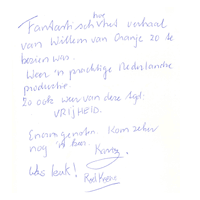 hoe
Fantastisch het verhaal
van Willem van Oranje zo te
bezien was.
Weer 'n prachtige Nederlandse
productie.
Zo ook weer van deze tijd:
VRIJHEID.
Enorm genoten. Kom zeker
nog 'n keer.
Was leuk!